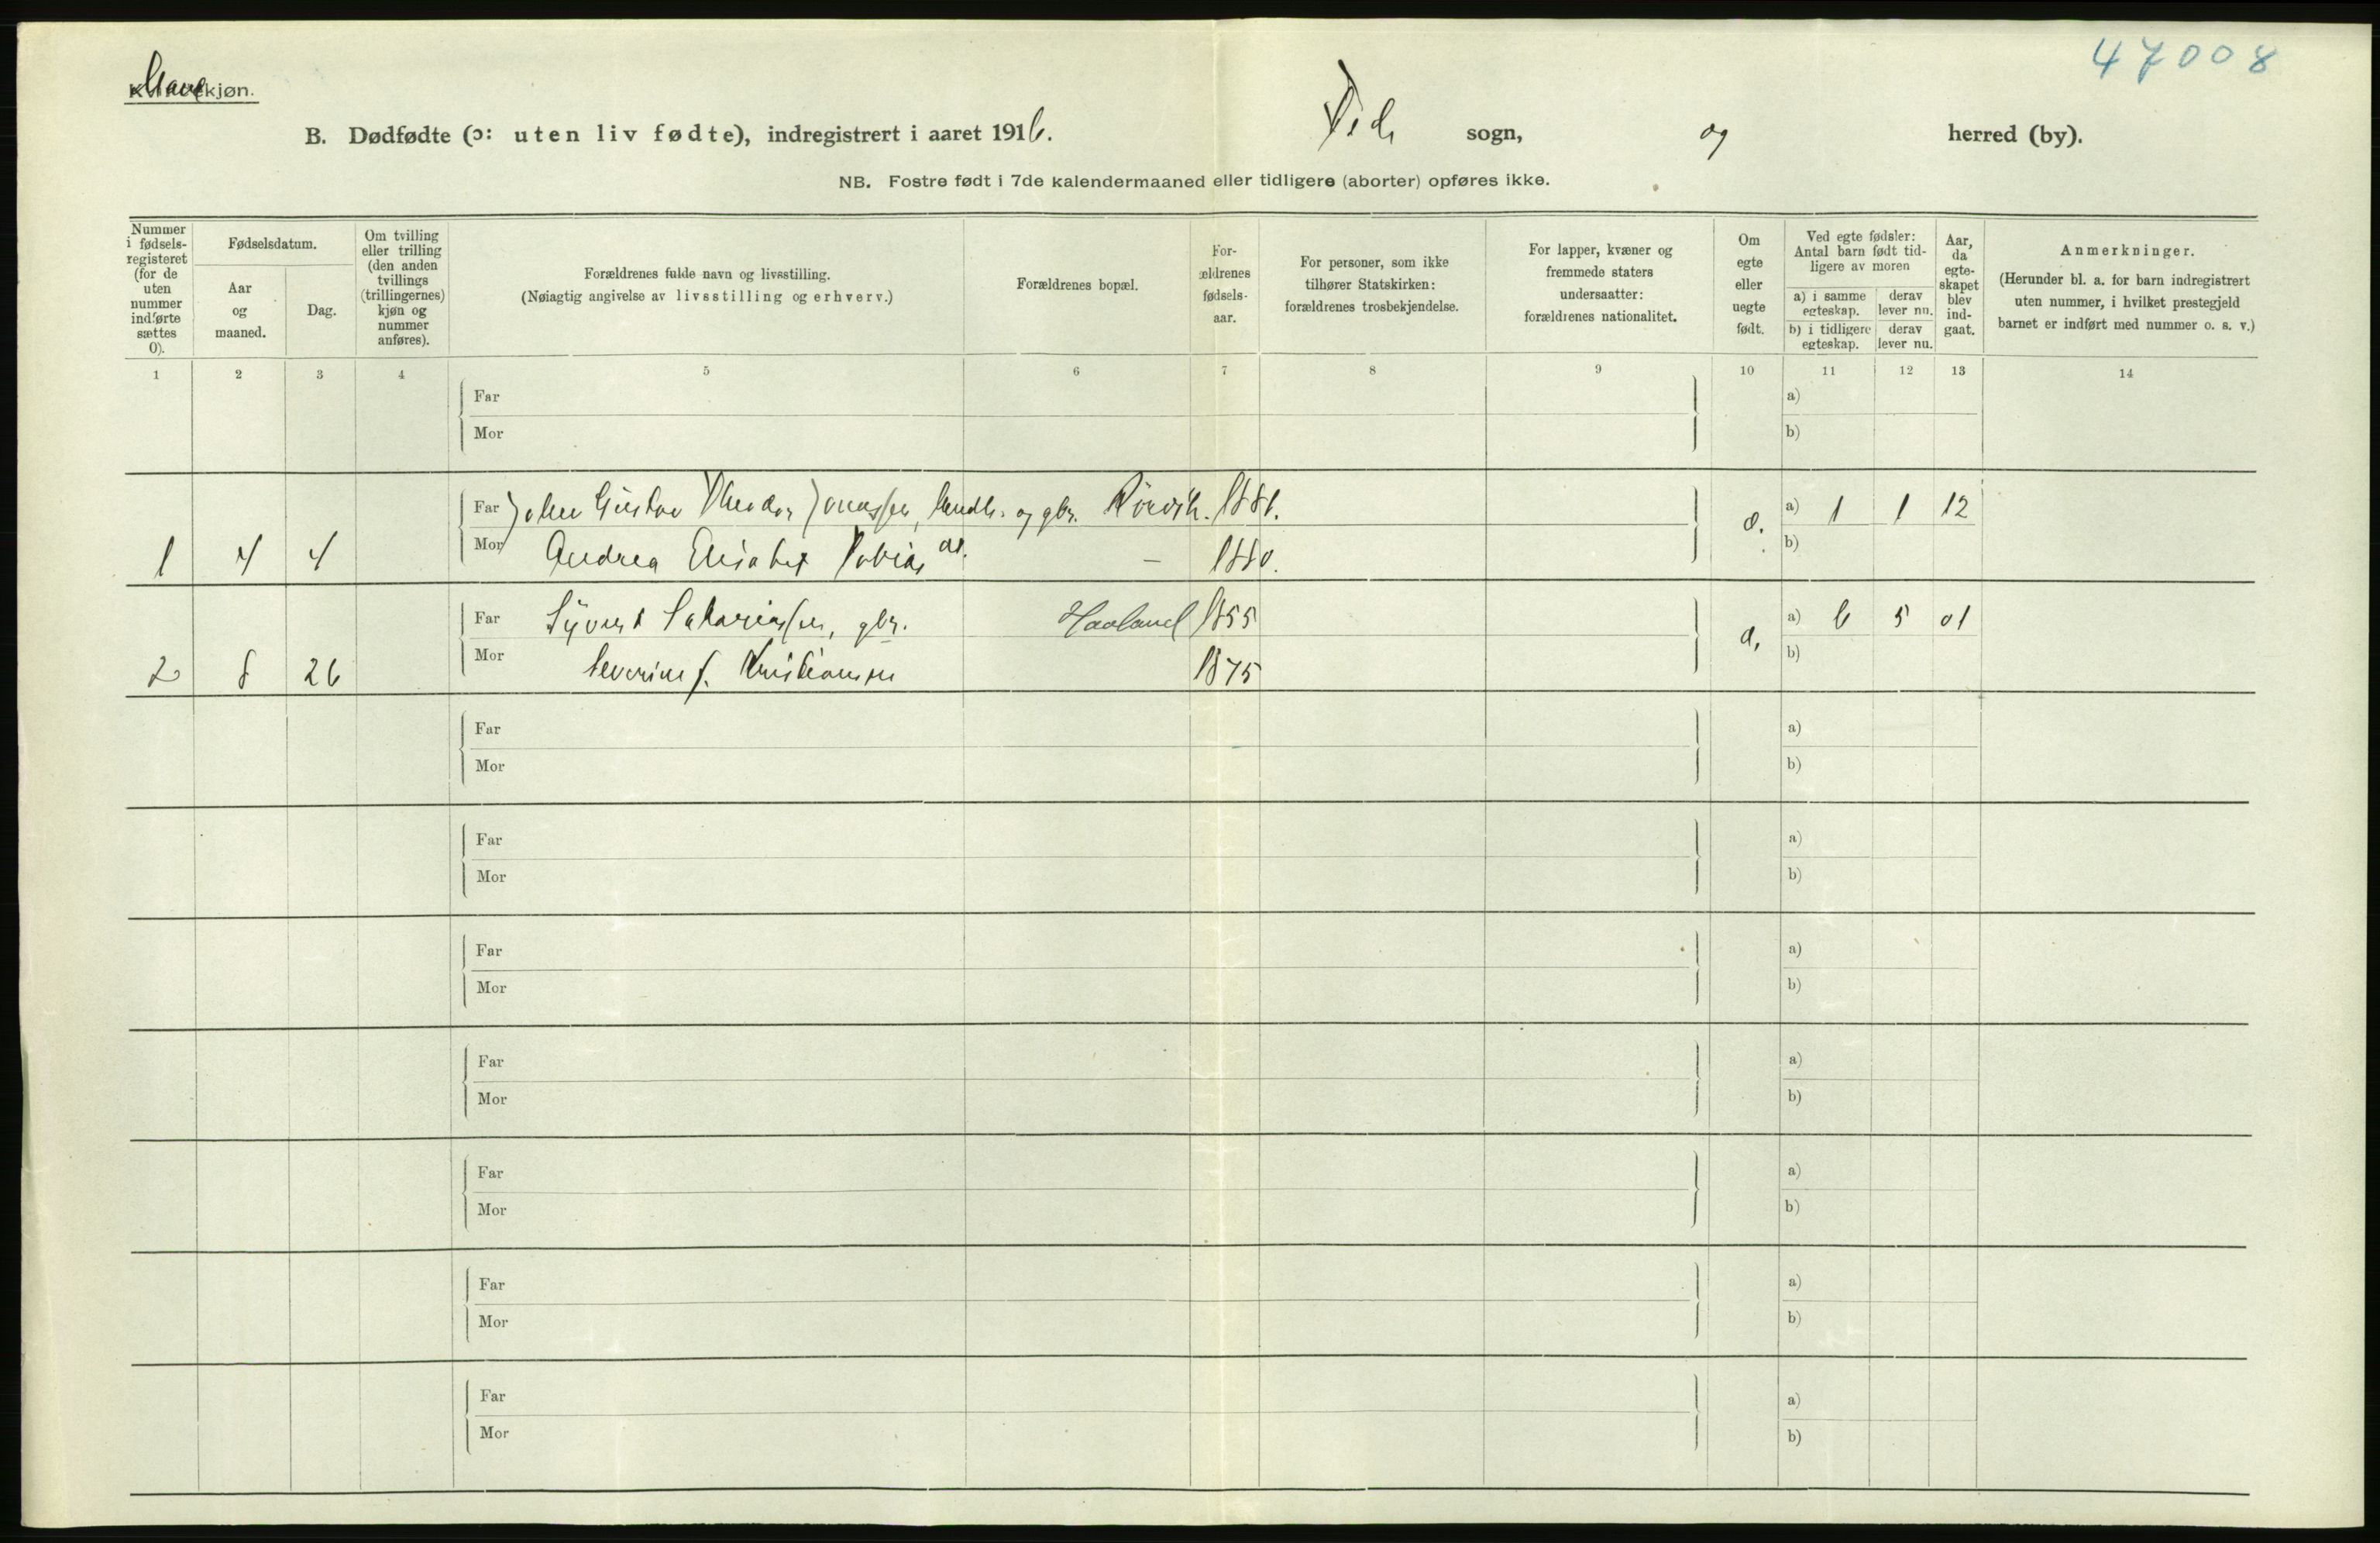 47008
Mandkjøn.
B. Dødfødte (ɔ: uten liv fødte), indregistrert i aaret 1916. sogn, og herred (by).
NB. Fostre født i 7de kalendermaaned eller tidligere (aborter) opføres ikke.
Nummer i fødsels-registeret (for de uten nummer indførte sættes 0).
Fødselsdatum.
Aar og maaned.
Dag.
Om tvilling eller trilling (den anden tvillings (trillingernes) kjøn og nummer anføres).
Forældrenes fulde navn og livsstilling.
(Nøiagtig angivelse av livsstilling og erhverv.)
Forældrenes bopæl.
For-ældrenes fødsels-aar.
For personer, som ikke tilhører Statskirken: forældrenes trosbekjendelse.
For lapper, kvæner og fremmede staters undersaatter: forældrenes nationalitet.
Om egte eller uegte født.
Ved egte fødsler: Antal barn født tid-ligere av moren
a) i samme egteskap.
derav lever nu.
b) i tidligere egteskap.
derav lever nu.
Aar, da egte-skapet blev ind-gaat.
Anmerkninger.
(Herunder bl. a. for barn indregistrert uten nummer, i hvilket prestegjeld barnet er indført med nummer o. s. v.)
1 2 3 4 5 6 7 8 9 10 11 12 13 14
Far a)
Mor b)
Far Gustav Theodor Jonassen, og gbr. 1881. a) 1 1 12
1 4 4 Mor Andrea Elisabet Tobias - 1880. b)
Far Syvert Sakariassen, gbr. Haaland 1855 a) 6 5 01
2 8 26 Mor Severine f. Kristiansen 1875 b)
Far a)
Mor b)
Far a)
Mor b)
Far a)
Mor b)
Far a)
Mor b)
Far a)
Mor b)
Far a)
Mor b)
Far a)
Mor b)